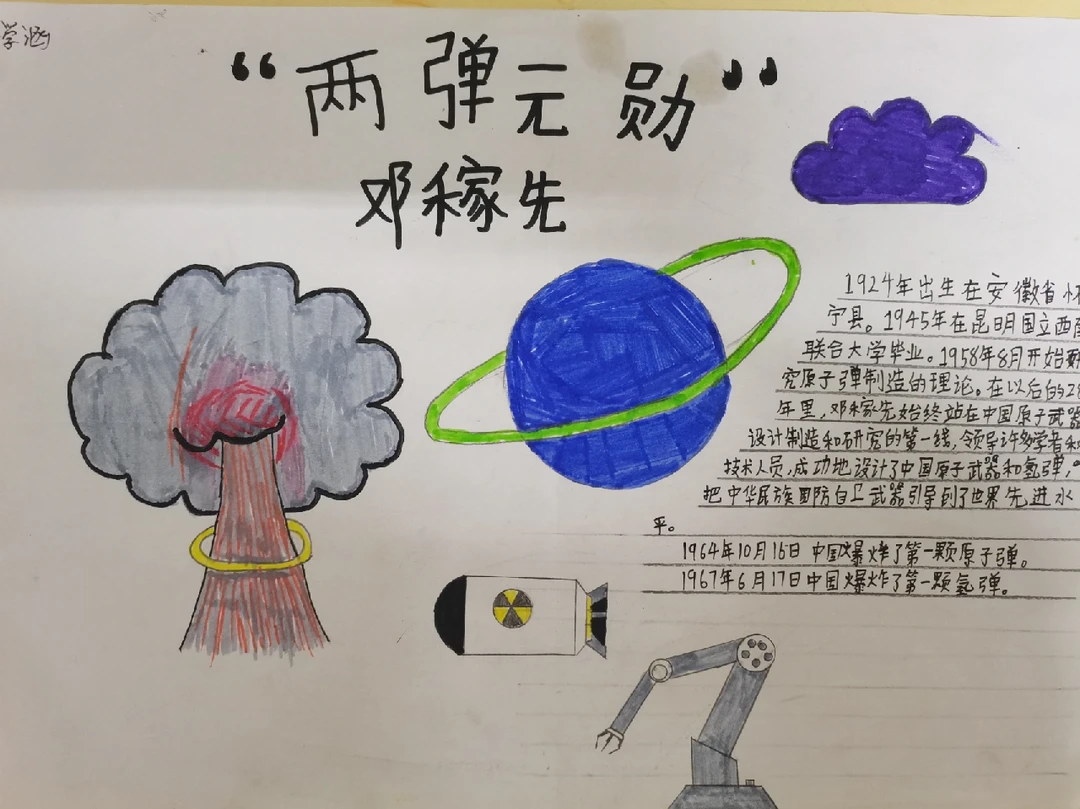 学涵
“两弹元勋”
邓稼先
1924年出生在安徽省怀
宁县。1945年在昆明国立西南
联合大学毕业。1958年8月开始
究原子弹制造的理论。在以后的
年里,邓稼先始终站在中国原子武器
设计制造和研究的第一线,领导许多学者和
技术人员,成功地设计了中国原子武器和氢弹,
把中华民族国防自卫武器引导到了世界先进水
平。
1964年10月16日中国爆炸了第一颗原子弹。
1967年6月17日中国爆炸了第一颗氢弹。